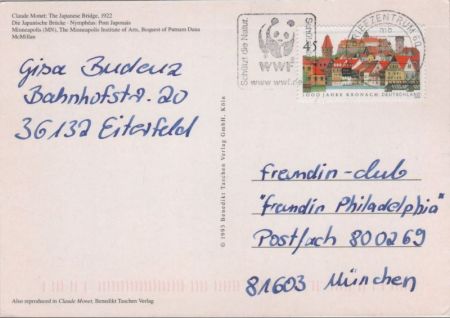 Claude Monet: The Japanese Bridge, 1922
Die Japanische Brücke · Nymphéas: Pont Japonais
Minneapolis (MN), The Minneapolis Institute of Arts, Bequest of Putnam Dana
McMillan
Gisa Budenz
Bahnhofstr. 20
36132 Eiterfeld
© 1993 Benedikt Taschen Verlag GmbH, Köln
Schützt die Natur.
WWF
BRIEFZENTRUM 60
45
1000 JAHRE KRONACH DEUTSCHLAND
freundin-club
"freundin Philadelphia"
Postfach 800269
81603 München
Also reproduced in Claude Monet, Benedikt Taschen Verlag